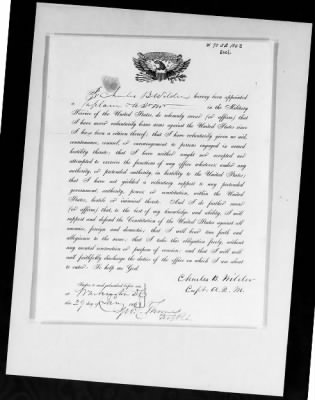 W 70 VS 1863
Encl.
I, Charles B. Wilder having been appointed
a Captain & A.Q.M. in the Military
Service of the United States, do solemnly swear (or affirm) that
I have never voluntarily borne arms against the United States since
I have been a citizen thereof; that I have voluntarily given no aid,
countenance, counsel, or encouragement to persons engaged in armed
hostility thereto; that I have neither sought nor accepted nor
attempted to exercise the functions of any office whatever, under any
authority, or pretended authority, in hostility to the United States;
that I have not yielded a voluntary support to any pretended
government, authority, power, or constitution, within the United
States, hostile or inimical thereto. And I do further swear
(or affirm) that, to the best of my knowledge and ability, I will
support and defend the Constitution of the United States against all
enemies, foreign and domestic; that I will bear true faith and
allegiance to the same; that I take this obligation freely, without
any mental reservation or purpose of evasion; and that I will well
and faithfully discharge the duties of the office on which I am about
to enter: So help me God.
Charles B. Wilder
Capt. A. Q. M.
Sworn to and subscribed before me,
at Washington D.C.
this 29 day of